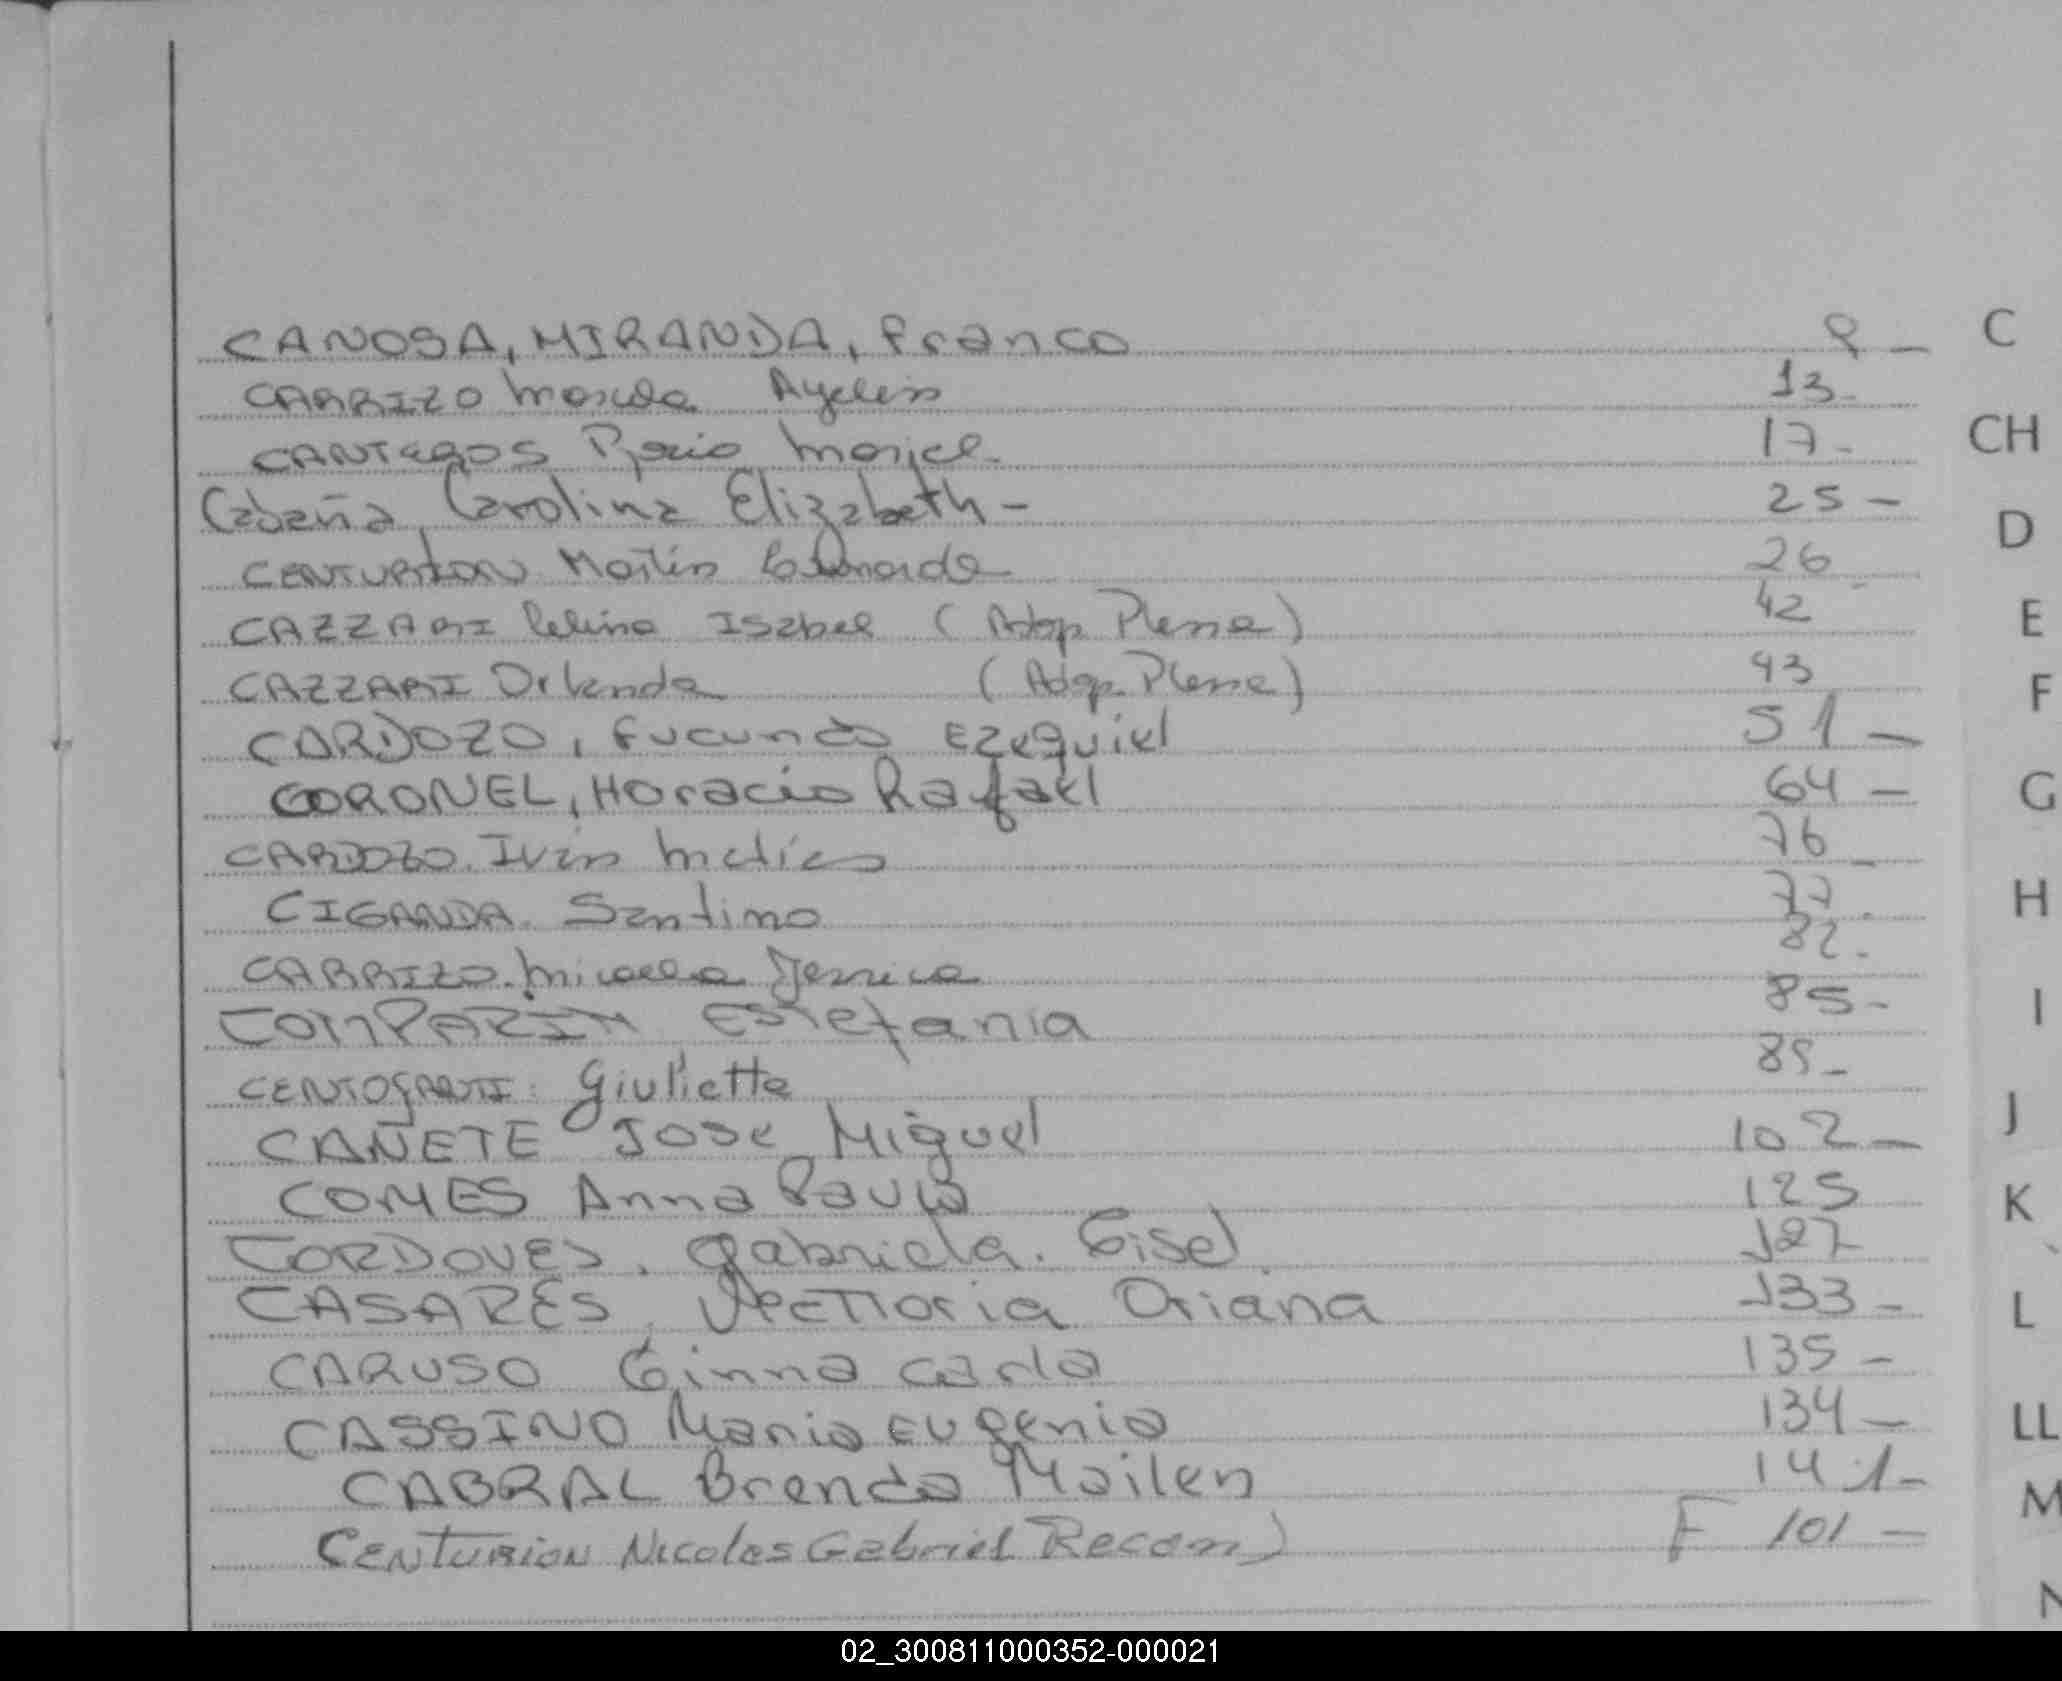 CANOSA, MIRANDA, Franco 9 -
CARRIZO Ayelen 13-
CANTEROS Rocio Maricel- 17-
Cabaña, Carolina Elizabeth- 25-
CENTURION Martin 26-
CAZZARI Celina Isabel (Adop. Plena) 42
CAZZARI Orlando (Adop. Plena) 43
CARDOZO, Facundo Ezequiel 51-
CORONEL, Horacio Rafael 64-
CARDOZO. Ivan Matias 76-
CIGANDA. Santino 77.
CARRIZO. Micaela Jessica 82.
COMPARIM Estefania 85-
CENTOFANTI. Giuliette 89-
CAÑETE Jose Miguel 102-
COMES Anna Paula 125
CORDOVES, Gabriela. Gisel. 127
CASARES, Oriana 133-
CARUSO Ginna Carla 135-
CASSINO Maria Eugenia 134-
CABRAL Brenda Mailen 141-
CENTURION Nicolas Gabriel Recon) F 101-
C
CH
D
E
F
G
H
I
J
K
L
LL
M
N
02_300811000352-000021